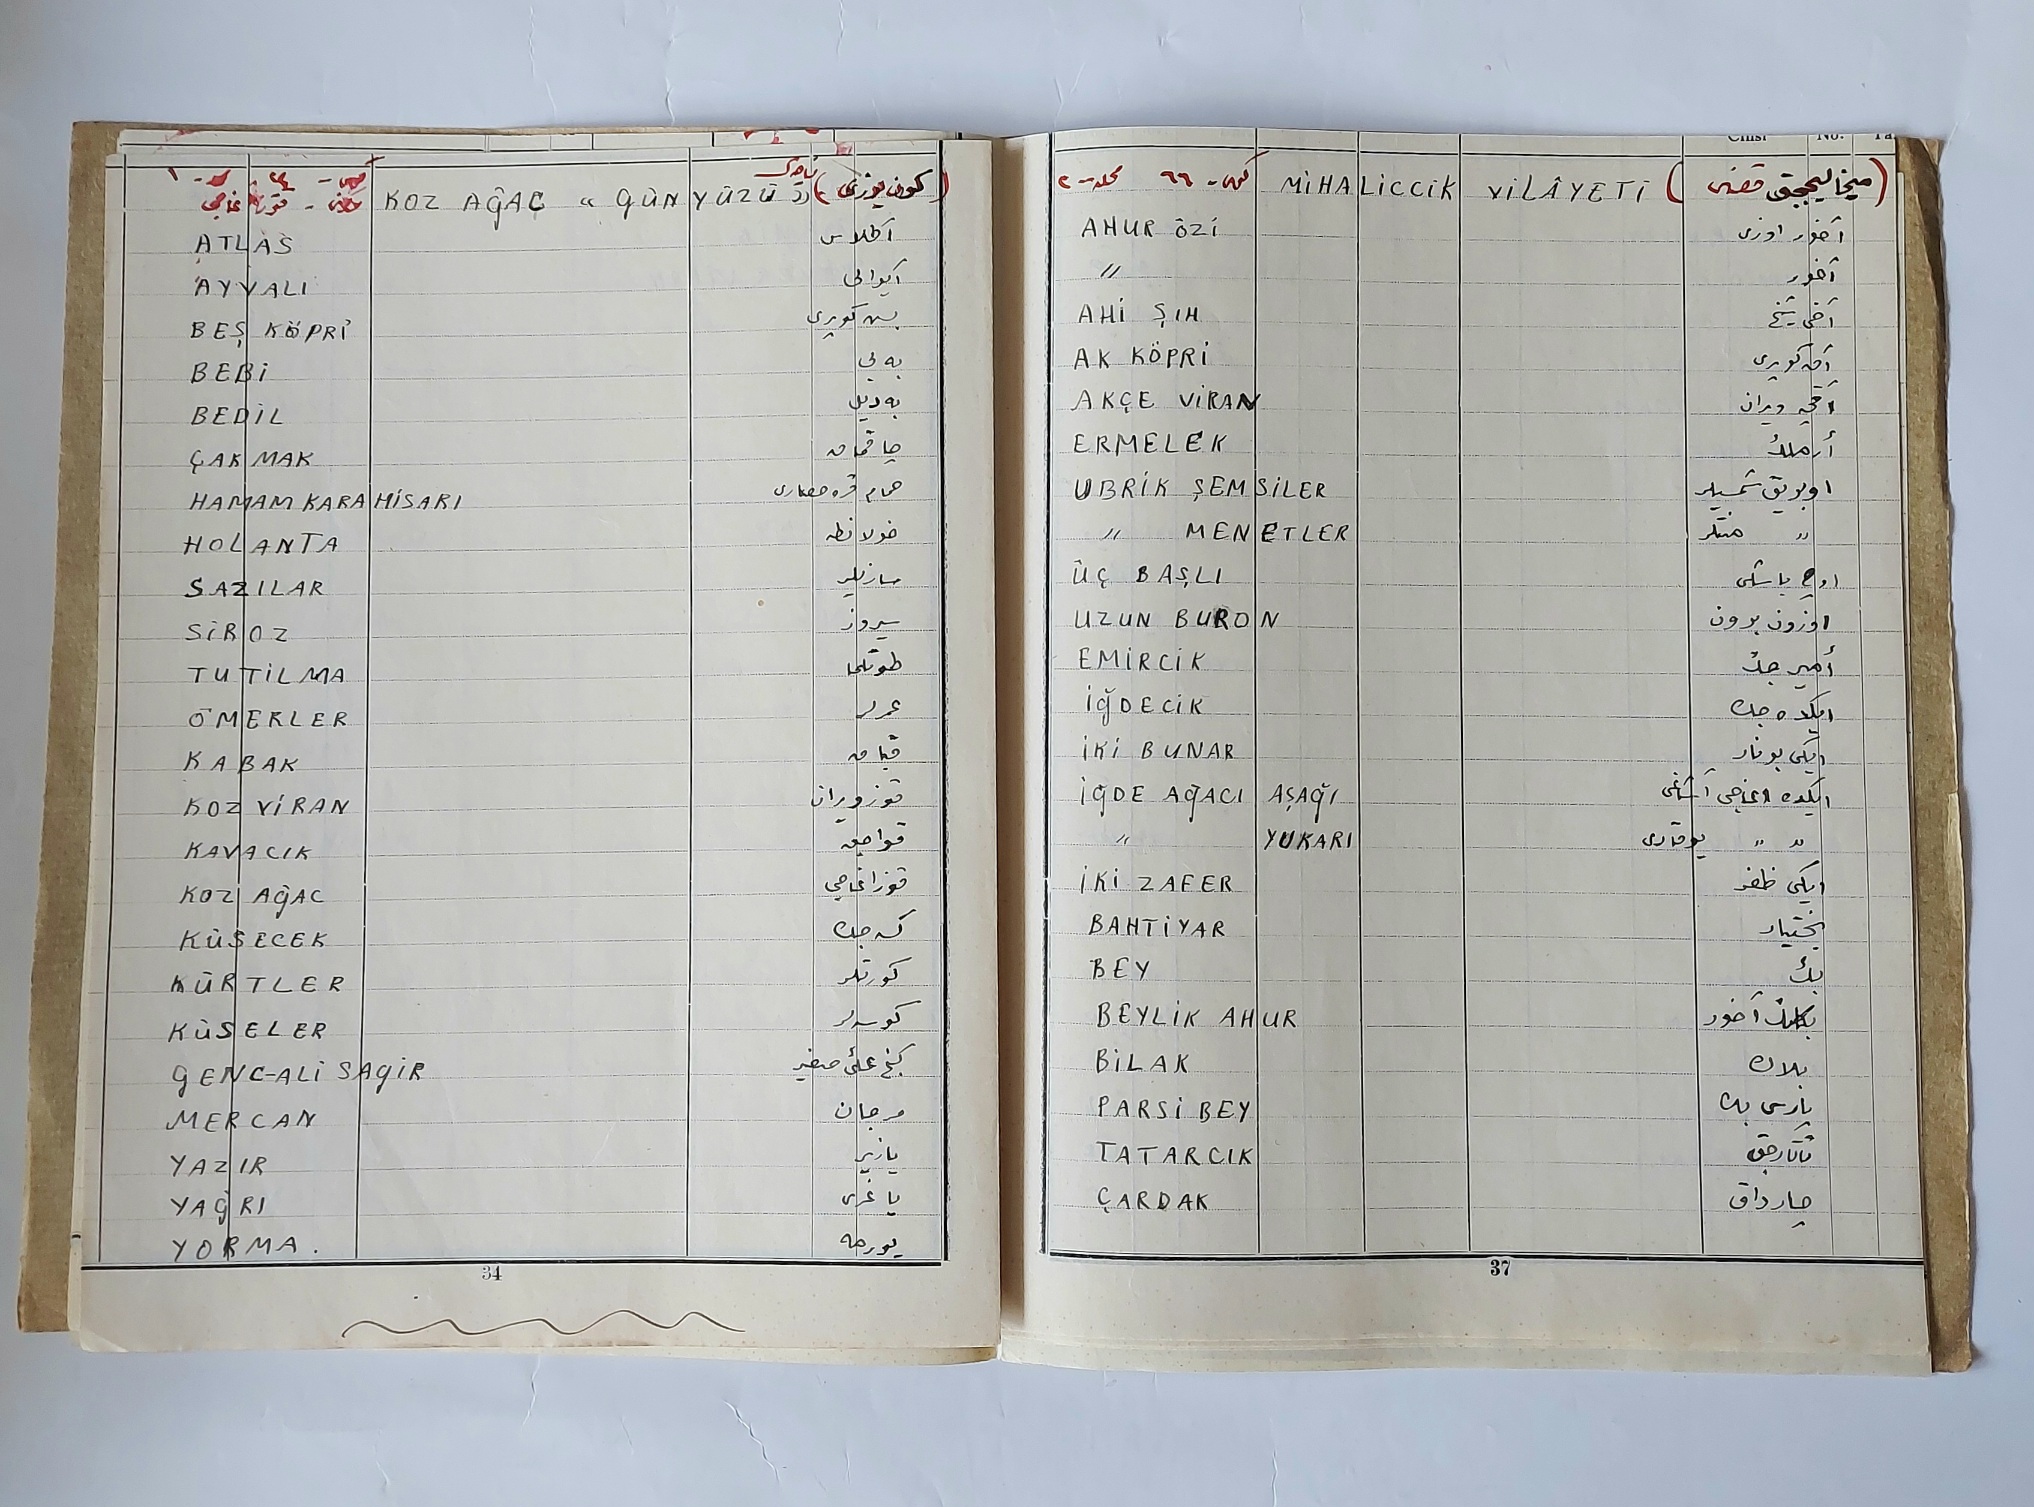 KOZ AĞAC « GÜNYÜZÜ » ناحيه (كون يوزى)
ATLAS آطلاس
AYVALI آيوالى
BEŞ KÖPRİ بش كوپرى
BEBİ به بى
BEDİL به ديل
ÇAKMAK چاقماق
HAMAM KARAHİSARI حمام قره حصارى
HOLANTA خولانطه
SAZILAR سازيلر
SİROZ سيروز
TUTİLMA طوتلما
ÖMERLER عمرلر
KABAK قباق
KOZ VİRAN قوزويران
KAVACIK قواجق
KOZ AĞAC قوزاغاجى
KÜSECEK كسه جك
KÜRTLER كورتلر
KÜSELER كوسه لر
GENC-ALİ SAGİR كنج على صغير
MERCAN مرجان
YAZIR يازير
YAĞRI ياغرى
YORMA. يورمه
34
MİHALİCCİK VİLÂYETİ (ميخاليچجق قضاسى)
AHUR ÖZİ آخور اوزى
〃 آخور
AHİ ŞIH آخى شيخ
AK KÖPRİ آق كوپرى
AKÇE VİRAN آقچه ويران
ERMELEK أرملك
UBRİK ŞEMSİLER اوبريق شمسيلر
〃 MENETLER 〃 منتلر
ÜÇ BAŞLI اوچ باشلى
UZUN BURON اوزون بورون
EMİRCİK أمير جك
İĞDECİK ايكده جك
İKİ BUNAR ايكى بونار
İĞDE AĞACI AŞAĞI ايكده اغاجى آشاغى
〃 YUKARI 〃 〃 يوقارى
İKİ ZAFER ايكى ظفر
BAHTİYAR بختيار
BEY بك
BEYLİK AHUR بكلك آخور
BİLAK بلاك
PARSİ BEY پارسى بك
TATARCIK تاتارجق
ÇARDAK چارداق
37